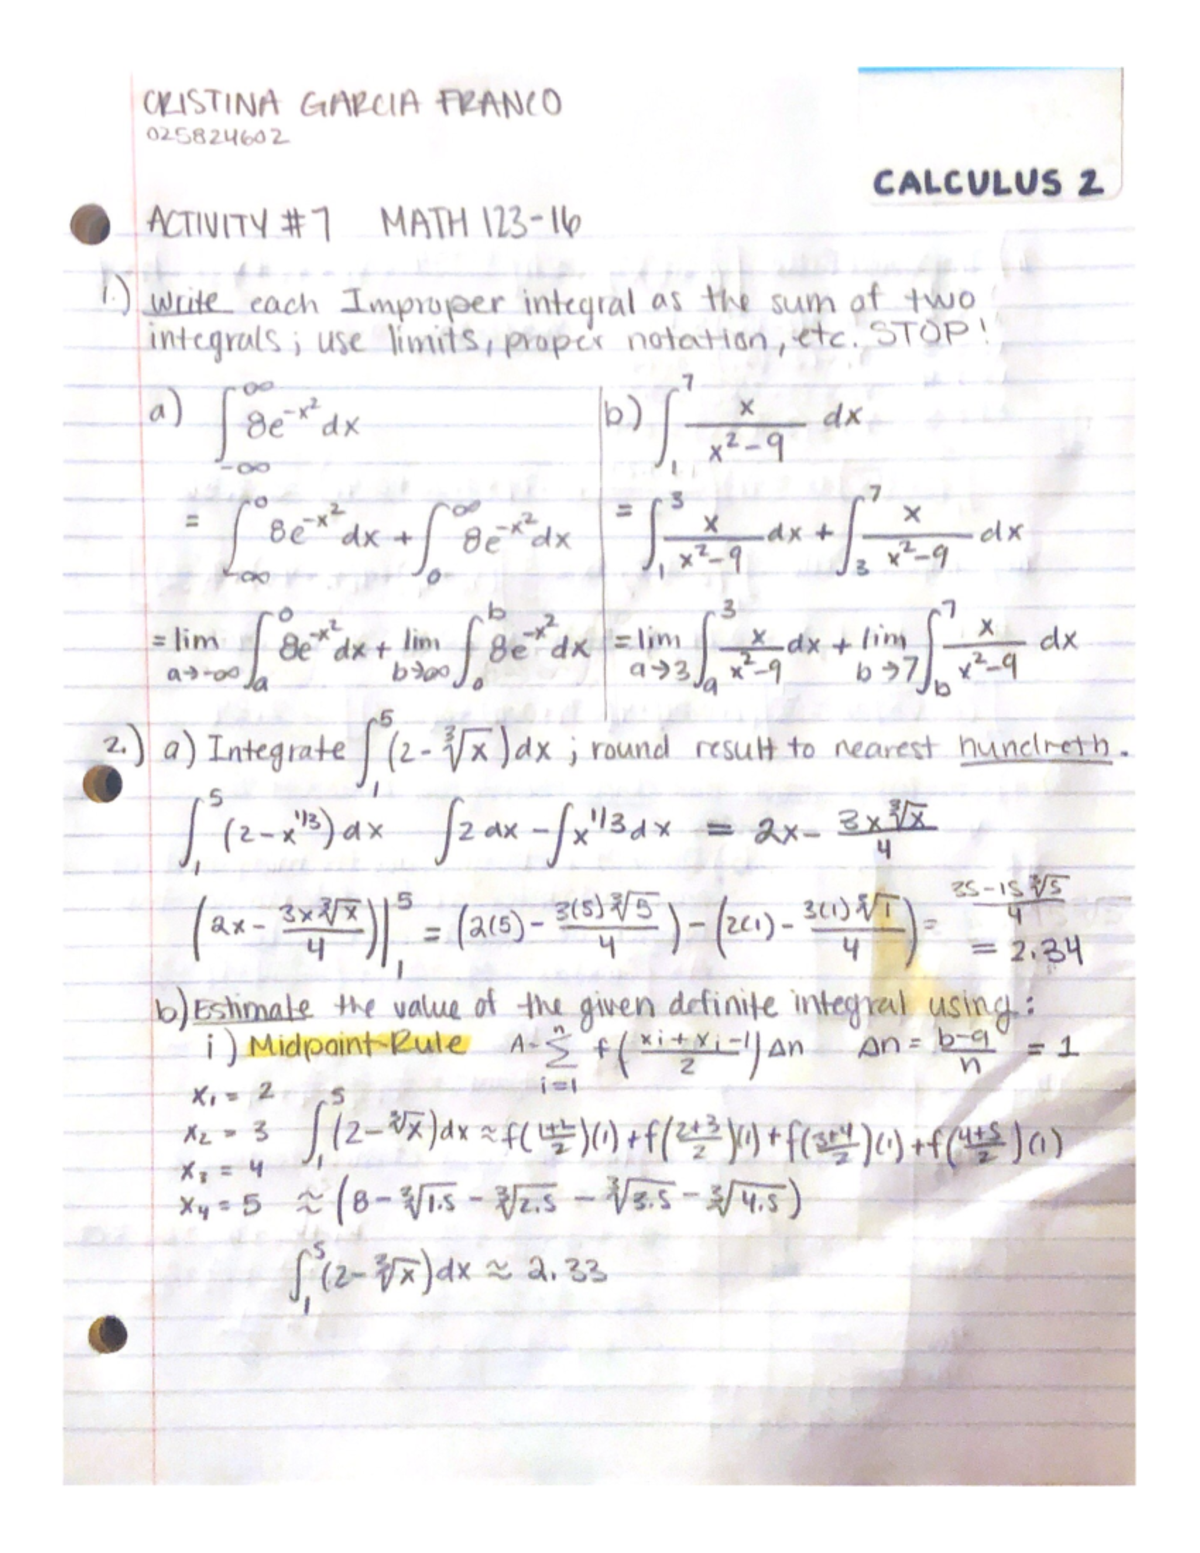 CRISTINA GARCIA FRANCO
025824602
CALCULUS 2
ACTIVITY #7 MATH 123-16
1.) Write each Improper integral as the sum of two
integrals; use limits, proper notation, etc. STOP!
a) ∫_{-∞}^{∞} 8e^{-x^2} dx
= ∫_{-∞}^{0} 8e^{-x^2} dx + ∫_{0}^{∞} 8e^{-x^2} dx
= lim_{a→-∞} ∫_{a}^{0} 8e^{-x^2} dx + lim_{b→∞} ∫_{0}^{b} 8e^{-x^2} dx
b) ∫_{1}^{7} x/(x^2-9) dx
= ∫_{1}^{3} x/(x^2-9) dx + ∫_{3}^{7} x/(x^2-9) dx
= lim_{a→3} ∫_{a}^{3} x/(x^2-9) dx + lim_{b→7} ∫_{b}^{7} x/(x^2-9) dx
2.) a) Integrate ∫_{1}^{5} (2-∛x) dx ; round result to nearest hundreth.
∫_{1}^{5} (2-x^{1/3}) dx ∫2 dx - ∫x^{1/3} dx = 2x - 3x∛x/4
(2x - 3x∛x/4)|_{1}^{5} = (2(5) - 3(5)∛5/4) - (2(1) - 3(1)∛1/4) = 35-15∛5/4
= 2.34
b) Estimate the value of the given definite integral using:
i) Midpoint Rule A-∑_{i=1}^{n} f(xi+xi-1/2) Δn Δn = b-a/n = 1
x₁ = 2
x₂ = 3 ∫_{1}^{5} (2-∛x) dx ≈ f(1+2/2)(1) + f(2+3/2)(1) + f(3+4/2)(1) + f(4+5/2)(1)
x₃ = 4
x₄ = 5 ≈ (8-∛1.5 - ∛2.5 - ∛3.5 - ∛4.5)
∫_{1}^{5} (2-∛x) dx ≈ 2.33